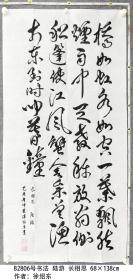 橋如虹水如空一葉飄然
煙雨中天教称放翁側
船篷使江風蟹舍參差漁
市东到时闻暮鐘
长相思 陆游
B2806号书法 陆游 长相思 68×138cm
作者：徐绍东